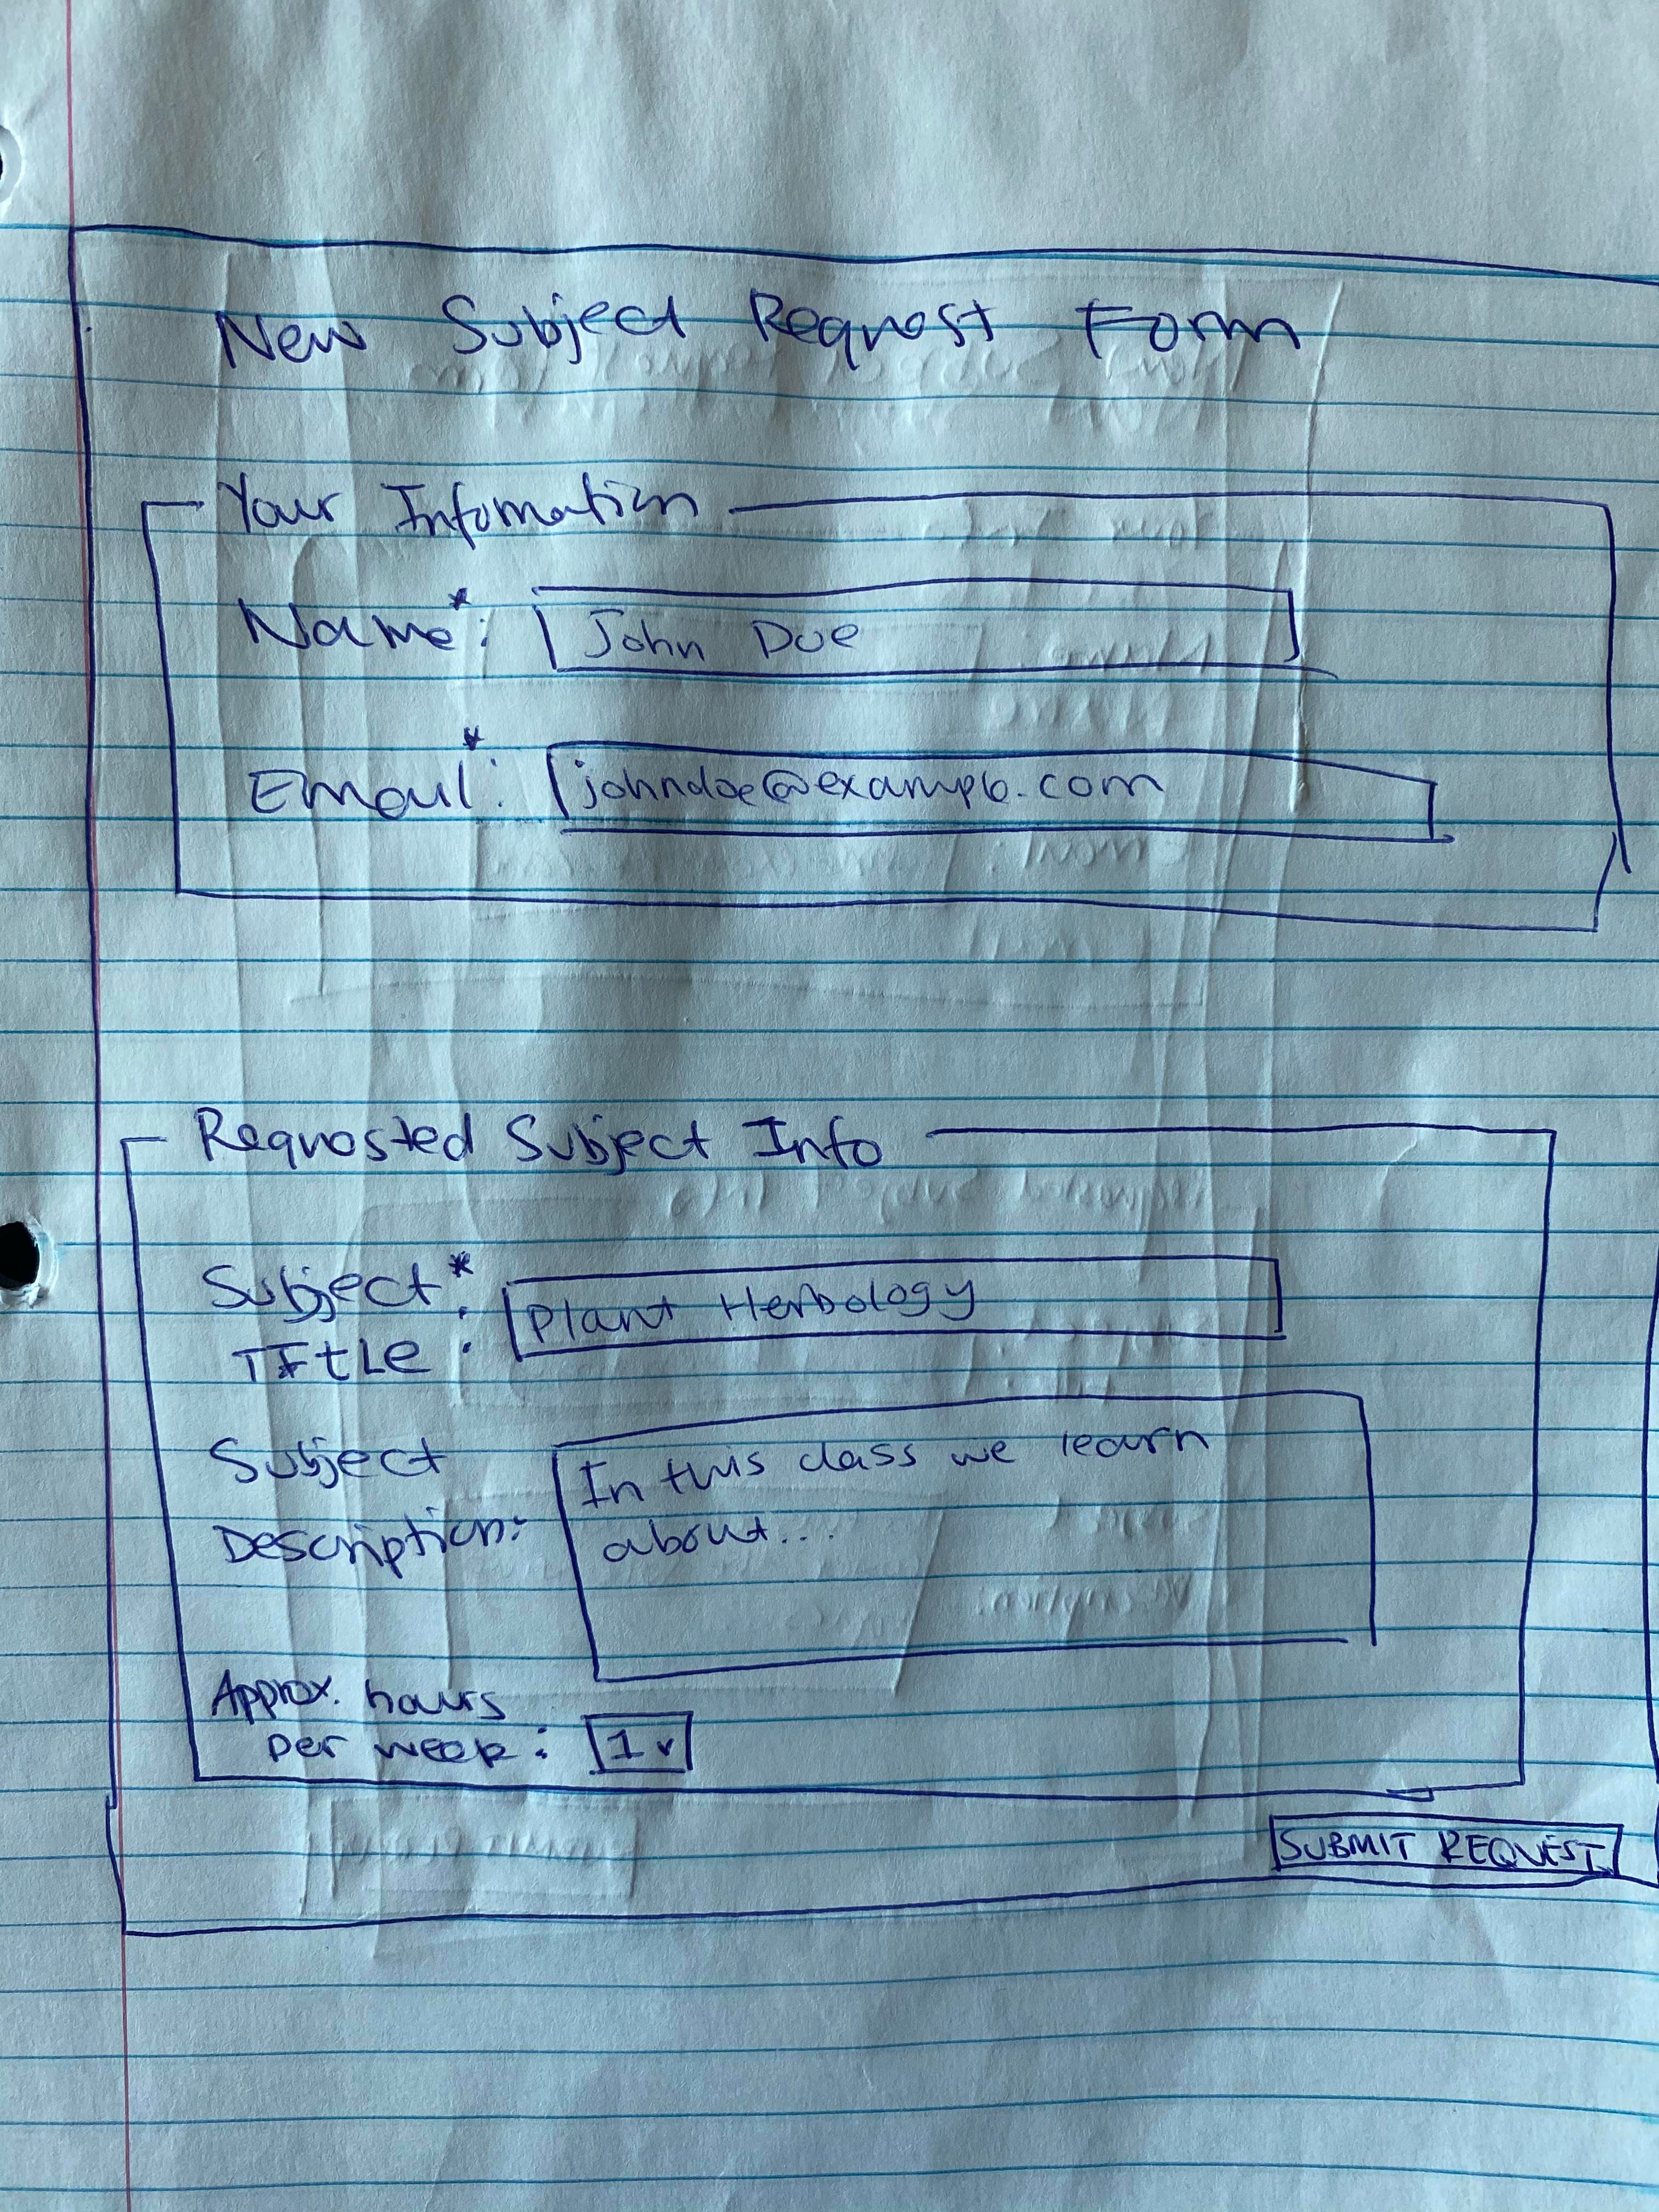 New Subject Request Form
Your Infomation
Name*: John Doe
Email*: johndoe@example.com
Requested Subject Info
Subject*
Title: Plant Herbology
Subject
Description: In this class we learn
about...
Approx. hours
per week: 1
SUBMIT REQUEST